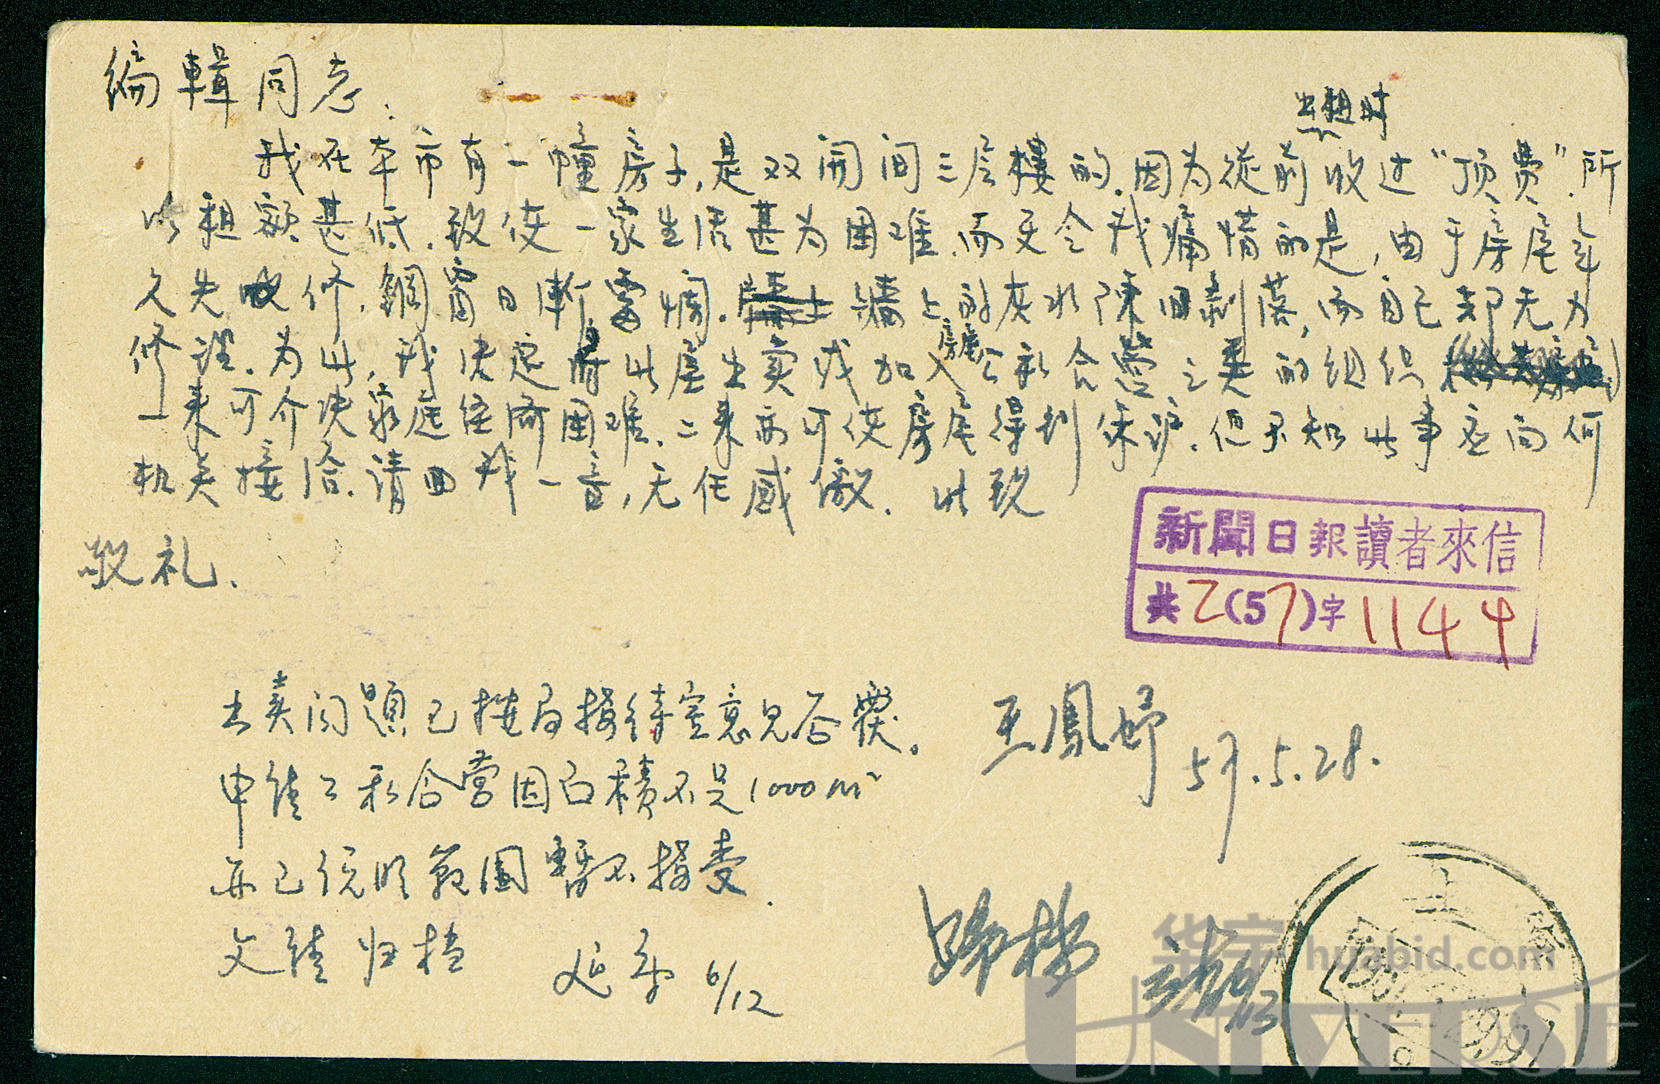 编輯同志：
出租时
我在本市有一幢房子,是双開间三层樓的.因为從前收过"顶费".所
以租额甚低.致使一家生活甚为困难.而更令我痛惜的是,由于房屋年
久失修,鋼窗日漸霉爛.牆上的灰水陳旧剥落,而自己却无力
修理.为此,我决定将此屋出卖或加入公私合营之类的组织
房屋
一来可介决家庭经济困难.二来亦可使房屋得到保护.但不知此事应向何
机关接洽.请回我一音,无任感激.此致
敬礼.
新聞日報讀者來信
共乙(57)字1144
王鳳婷
57.5.28.
出卖问題已按局接待室意见答覆。
申請公私合营因面積不足1000m²
亦已说明範围暫不接受.
文請归档
延 6/12
歸档
上海
华宇 huabid.com
UNIVERSE